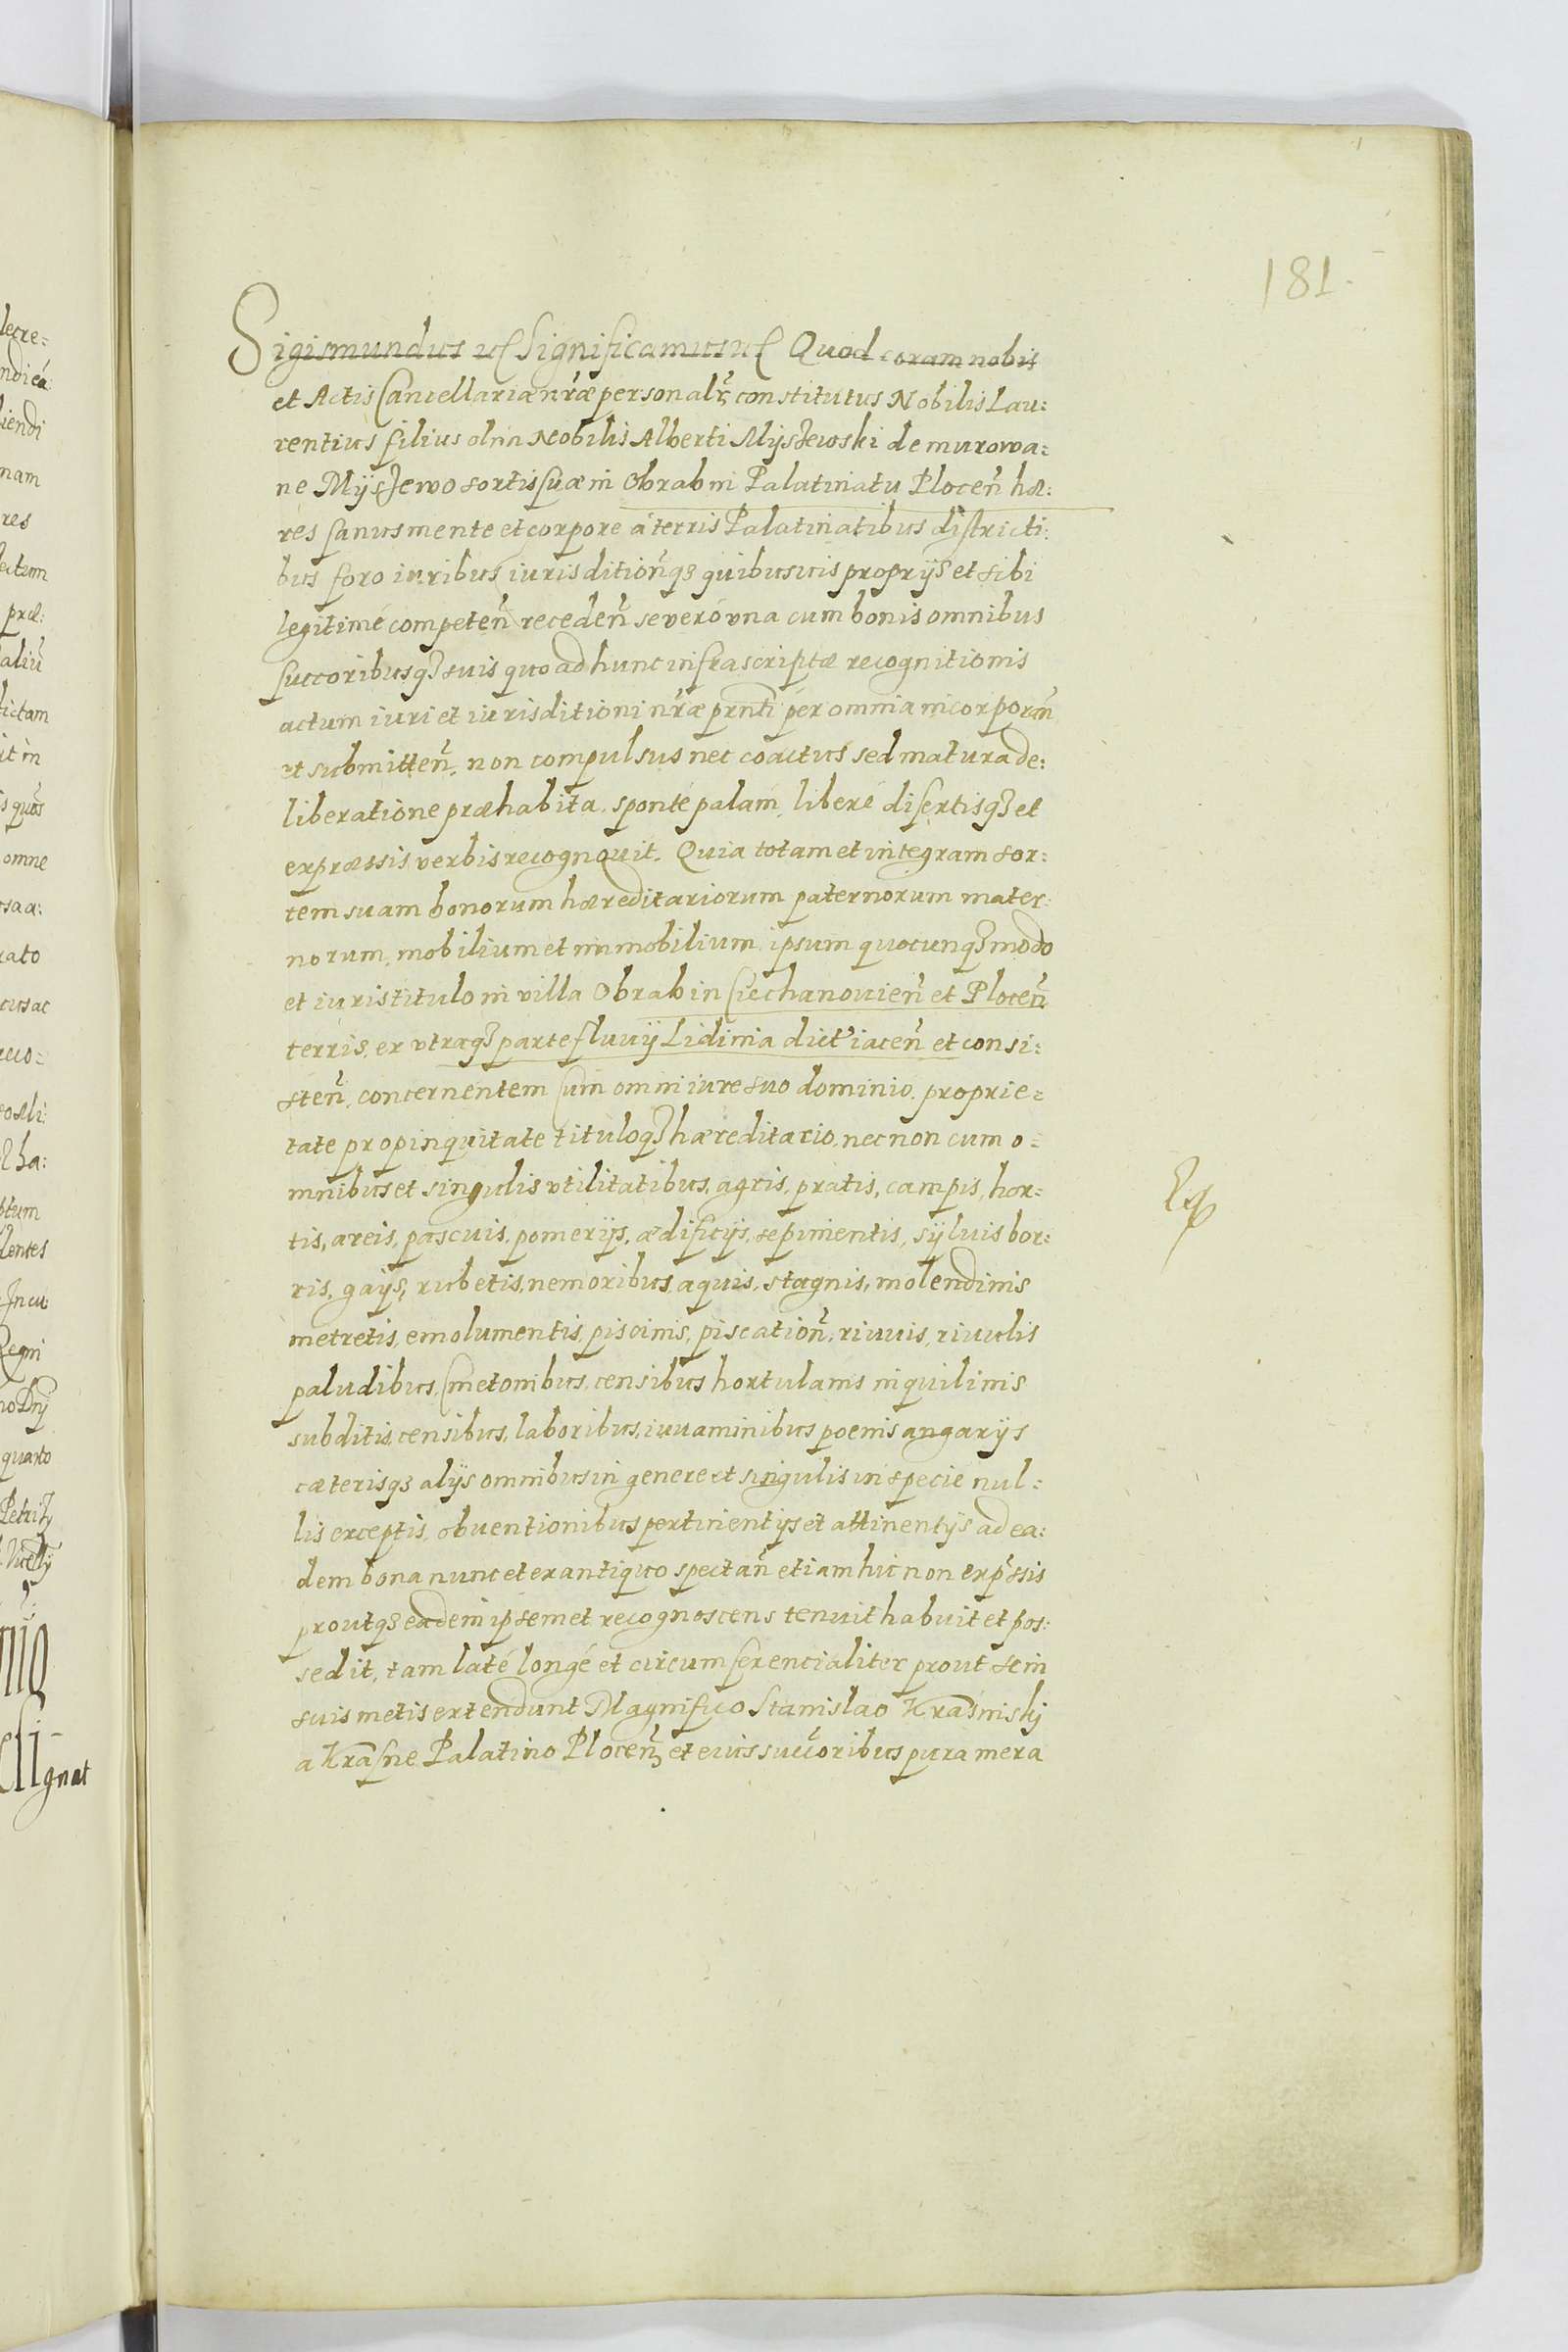 181.
Sigismundus etc Significamus etc Quod coram nobis
et Actis Cancellariæ nr̃æ personalr̃ constitutus Nobilis Lau:
rentius filius olim Nobilis Alberti Myszewski de murowa:
ne Myszewo sortis suæ in Obrab in Palatinatu Plocen̄ hæ:
res sanus mente et corpore á terris Palatinatibus districti:
bus foro iuribus iurisdition̄q3 quibusuis proprijs et sibi
legitimé competen̄ receden̄ se veró vna cum bonis omnibus
succoribusq3 suis quo ad hunc infrascriptæ recognitionis
actum iuri et iurisditioni nr̃æ prnti per omnia incorporan̄
et submitten̄, non compulsus nec coactus sed matura de:
liberatione præhabita, sponté palam, liberé disertisq3 et
expræssis verbis recognouit. Quia totam et integram sor:
tem suam bonorum hæreditariorum paternorum mater:
norum, mobilium et immobilium ipsum quocunq3 modo
et iuris titulo in villa Obrab in Ciechanouien̄ et Plocen̄
terris, ex vtraq3 parte fluuij Lidinia dict' iacen̄ et consi:
sten̄, concernentem cum omni iure suo dominio, proprie=
tate propinquitate tituloq3 hæreditario, necnon cum o=
mnibus et singulis vtilitatibus, agris, pratis, campis, hor=
tis, areis, pascuis, pomerijs, ædificijs, sepimentis, syluis bor:
ris, gays, rubetis, nemoribus, aquis, stagnis, molendinis
metretis, emolumentis, piscinis, piscation̄, riuuis, riuulis
paludibus, Cmetonibus, censibus hortulanis inquilinis
subditis, censibus, laboribus, iuuaminibus poenis angarijs
cæterisq3 alijs omnibus in genere et singulis in specie nul=
lis exceptis, obuentionibus pertinentijs et attinentijs ad ea:
dem bona nunc et ex antiquo spectan̄ etiam hic non exp̃ssis
proutq3 eadem ipsemet recognoscens tenuit habuit et pos:
sedit, tam laté longé et circumferencialiter prout se in
suis metis extendunt Magnifico Stanislao Krasinskj
a Krasne Palatino Plocen̄ et eius succoribus pura mera